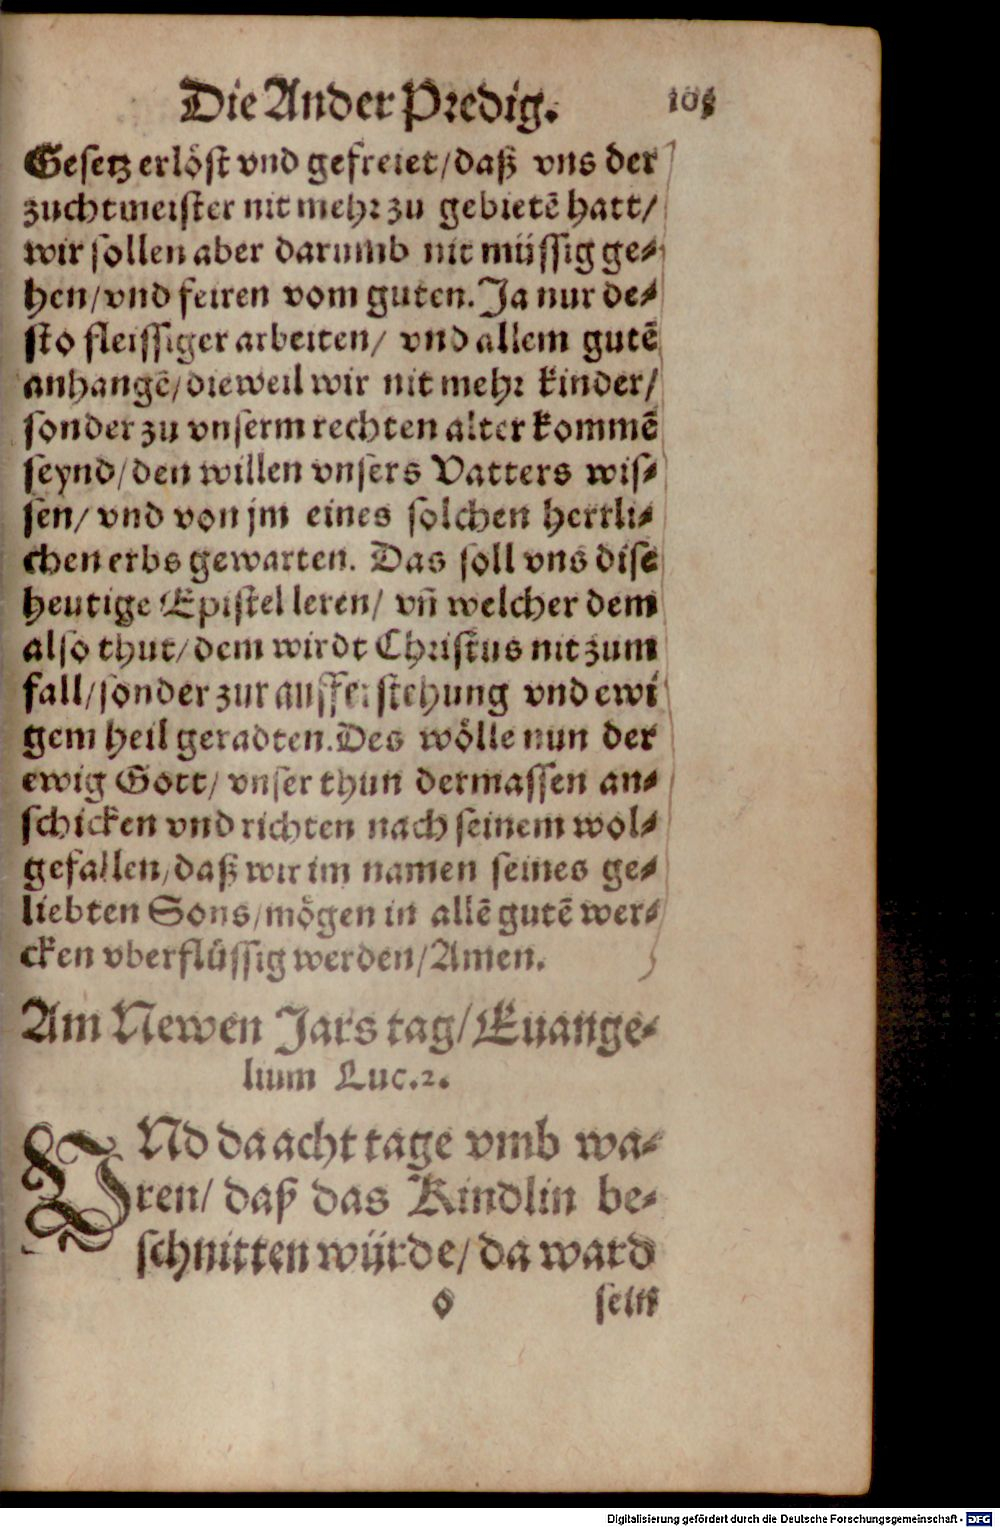 Die Ander Predig. 105
Gesetz erlöst vnd gefreiet/daß vns der
zuchtmeister nit mehr zu gebietē hatt/
wir sollen aber darumb nit müssig ge-
hen/vnd feiren vom guten. Ja nur de-
sto fleissiger arbeiten/ vnd allem gutē
anhangē/dieweil wir nit mehr kinder/
sonder zu vnserm rechten alter kommē
seynd/den willen vnsers Vatters wis-
sen/ vnd von jm eines solchen herrli-
chen erbs gewarten. Das soll vns dise
heutige Epistel leren/ vn̄ welcher dem
also thut/dem wirdt Christus nit zum
fall/sonder zur aufferstehung vnd ewi
gem heil geradten. Des wölle nun der
ewig Gott/ vnser thun dermassen an-
schicken vnd richten nach seinem wol-
gefallen/daß wir im namen seines ge-
liebten Sons/mögen in allē gutē wer-
cken vberflüssig werden/Amen.
Am Newen Jars tag/Euange-
lium Luc.2.
VNd da acht tage vmb wa-
ren/ daß das Kindlin be-
schnitten würde/ da ward
o sein
Digitalisierung gefördert durch die Deutsche Forschungsgemeinschaft - DFG